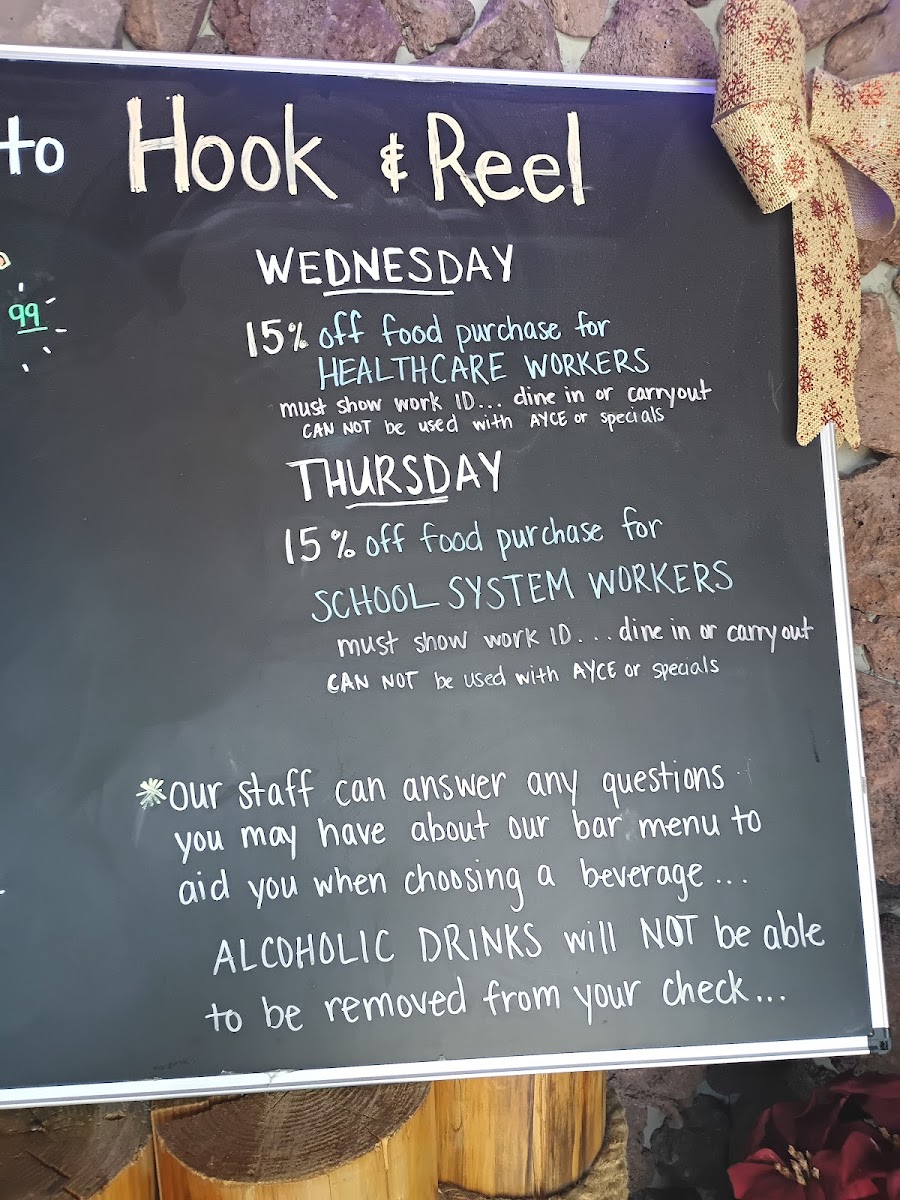 to Hook & Reel
99
WEDNESDAY
15% off food purchase for
HEALTHCARE WORKERS
must show work ID... dine in or carryout
CAN NOT be used with AYCE or specials
THURSDAY
15% off food purchase for
SCHOOL SYSTEM WORKERS
must show work ID... dine in or carryout
CAN NOT be used with AYCE or specials
*our staff can answer any questions
you may have about our bar menu to
aid you when choosing a beverage...
ALCOHOLIC DRINKS will NOT be able
to be removed from your check...